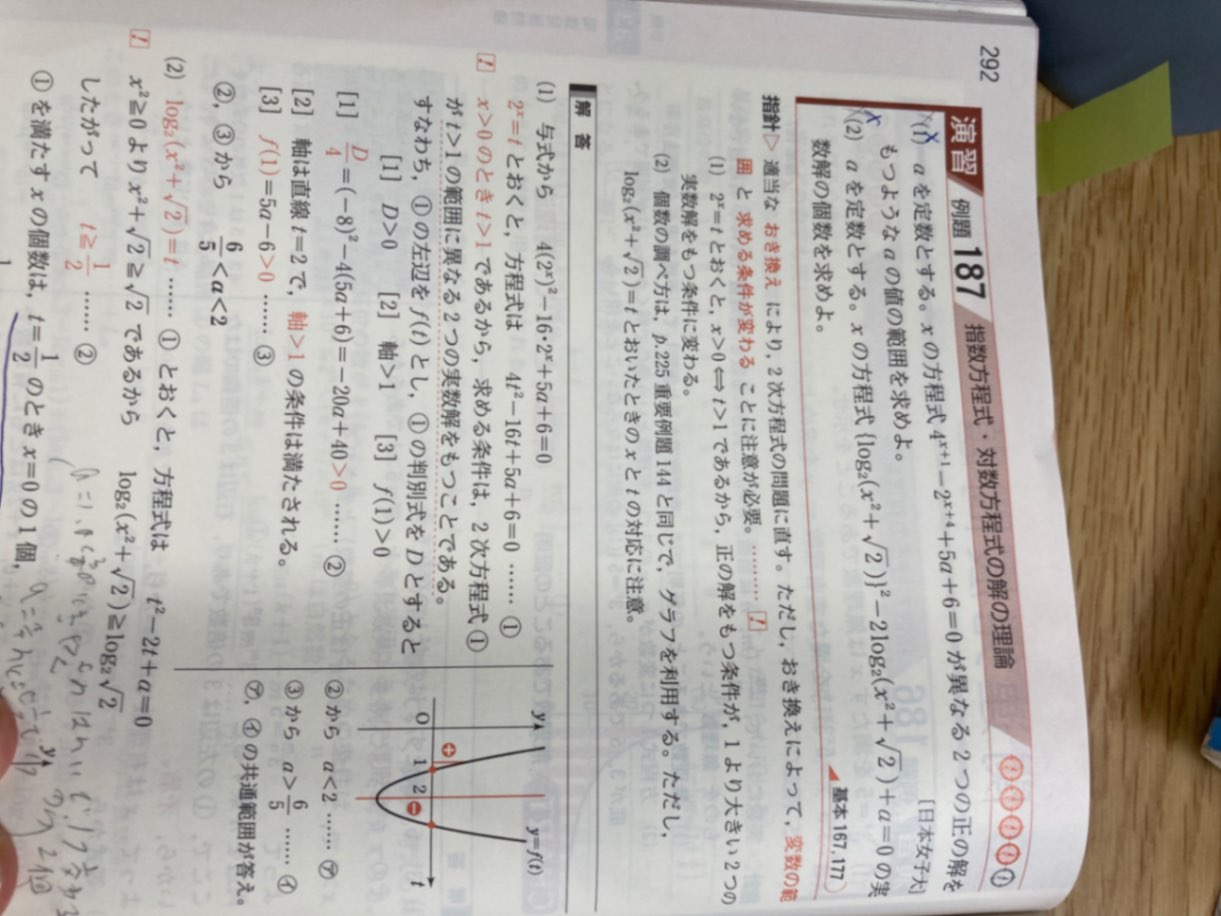 292
演習 例題 187 指数方程式・対数方程式の解の理論
(1) aを定数とする。xの方程式 4^{x+1}-2^{x+4}+5a+6=0 が異なる2つの正の解を
もつようなaの値の範囲を求めよ。 [日本女子大]
(2) aを定数とする。xの方程式 {log₂(x²+√2)}²-2log₂(x²+√2)+a=0 の実
数解の個数を求めよ。
基本 167, 177
指針▷ 適当な おき換え により, 2次方程式の問題に直す。ただし, おき換えによって, 変数の範
囲 と 求める条件が変わる ことに注意が必要。………!
(1) 2^x=t とおくと, x>0⇔t>1 であるから, 正の解をもつ条件が, 1より大きい2つの
実数解をもつ条件に変わる。
(2) 個数の調べ方は, p.225 重要例題 144 と同じで, グラフを利用する。ただし,
log₂(x²+√2)=t とおいたときの x と t の対応に注意。
解答
(1) 与式から 4(2^x)²-16・2^x+5a+6=0
2^x=t とおくと, 方程式は 4t²-16t+5a+6=0 …… ①
! x>0 のとき t>1 であるから, 求める条件は, 2次方程式①
が t>1 の範囲に異なる2つの実数解をもつことである。
すなわち, ①の左辺を f(t) とし, ①の判別式を D とすると
[1] D>0 [2] 軸>1 [3] f(1)>0
[1] D/4=(-8)²-4(5a+6)=-20a+40>0 …… ②
[2] 軸は直線 t=2 で, 軸>1 の条件は満たされる。
[3] f(1)=5a-6>0 …… ③
②, ③から 6/5<a<2
y
y=f(t)
⊕
O 1 2 ⊖ t
②から a<2 …… ㋐
③から a>6/5 …… ㋑
㋐, ㋑の共通範囲が答え。
(2) log₂(x²+√2)=t …… ① とおくと, 方程式は t²-2t+a=0
! x²≧0 より x²+√2≧√2 であるから log₂(x²+√2)≧log₂√2
したがって t≧1/2 …… ②
①を満たす x の個数は, t=1/2 のとき x=0 の1個,
y